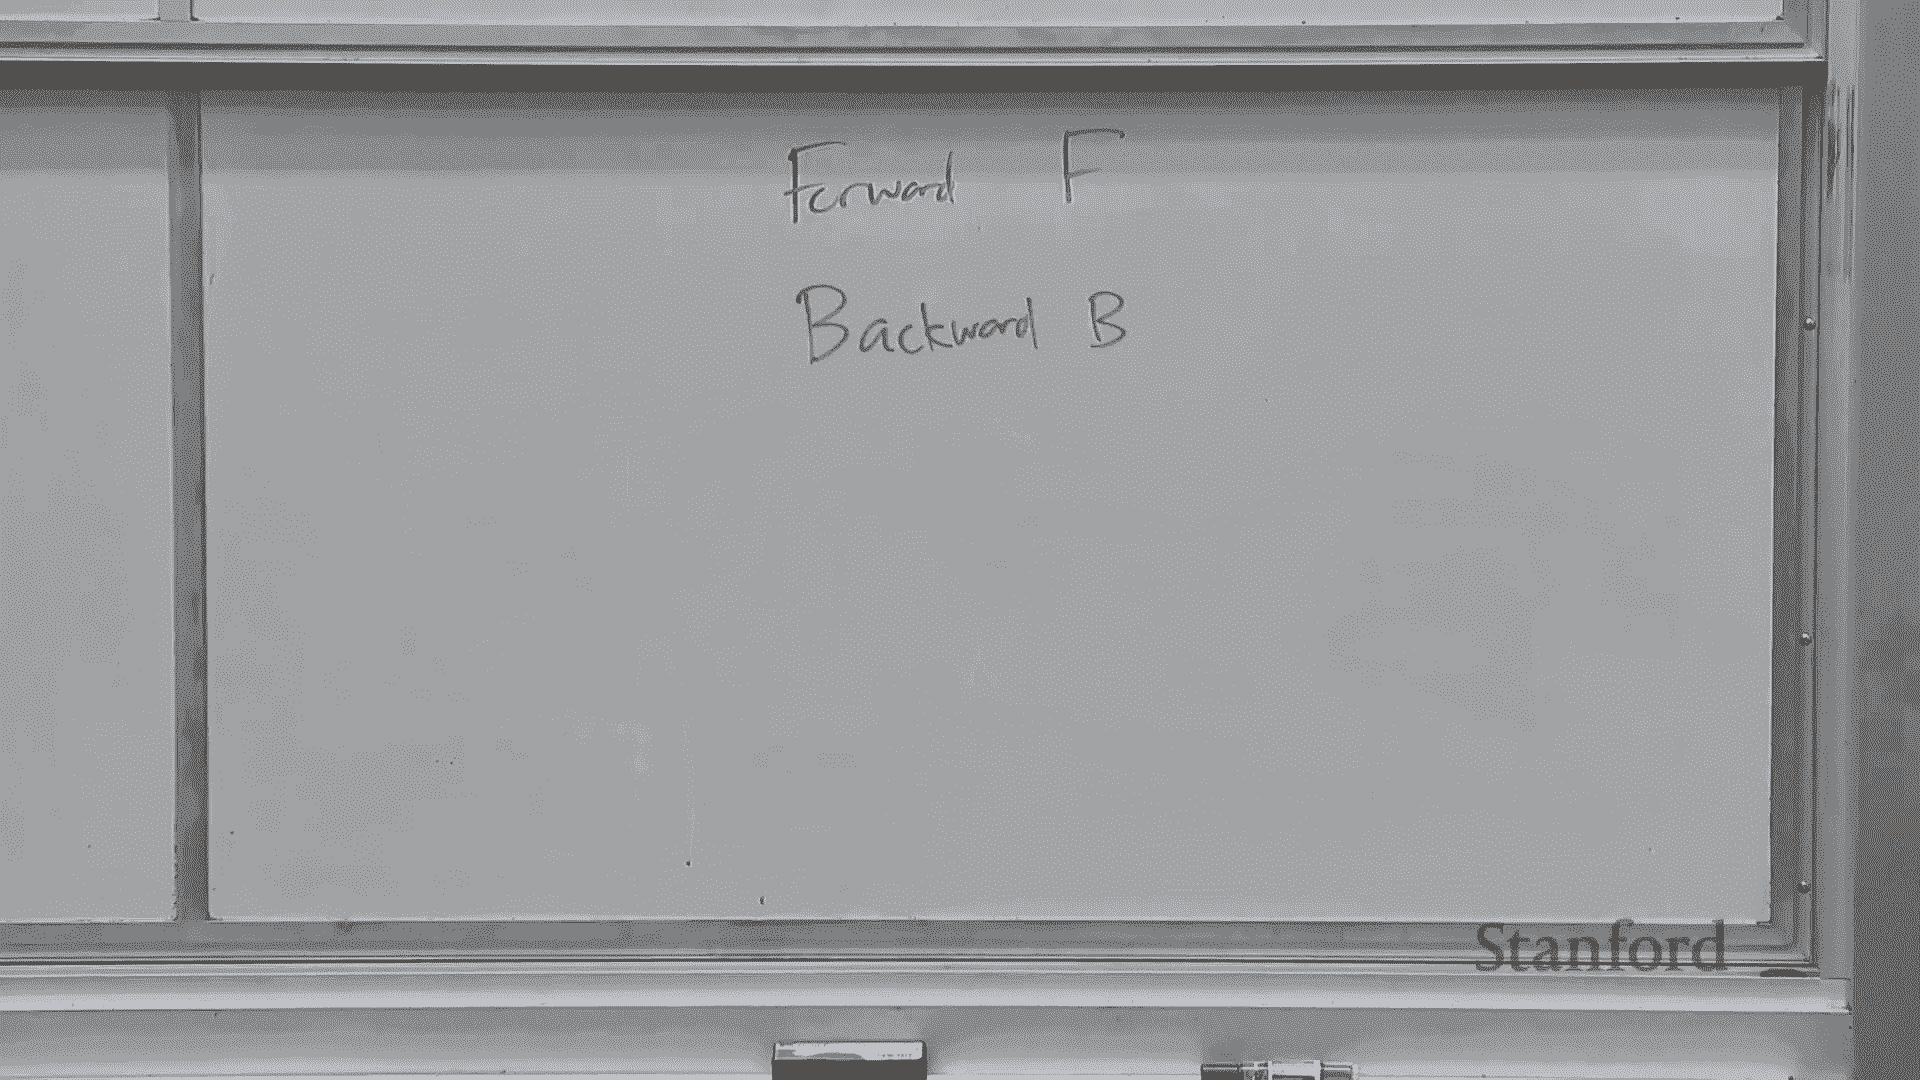 Forward F
Backward B
Stanford